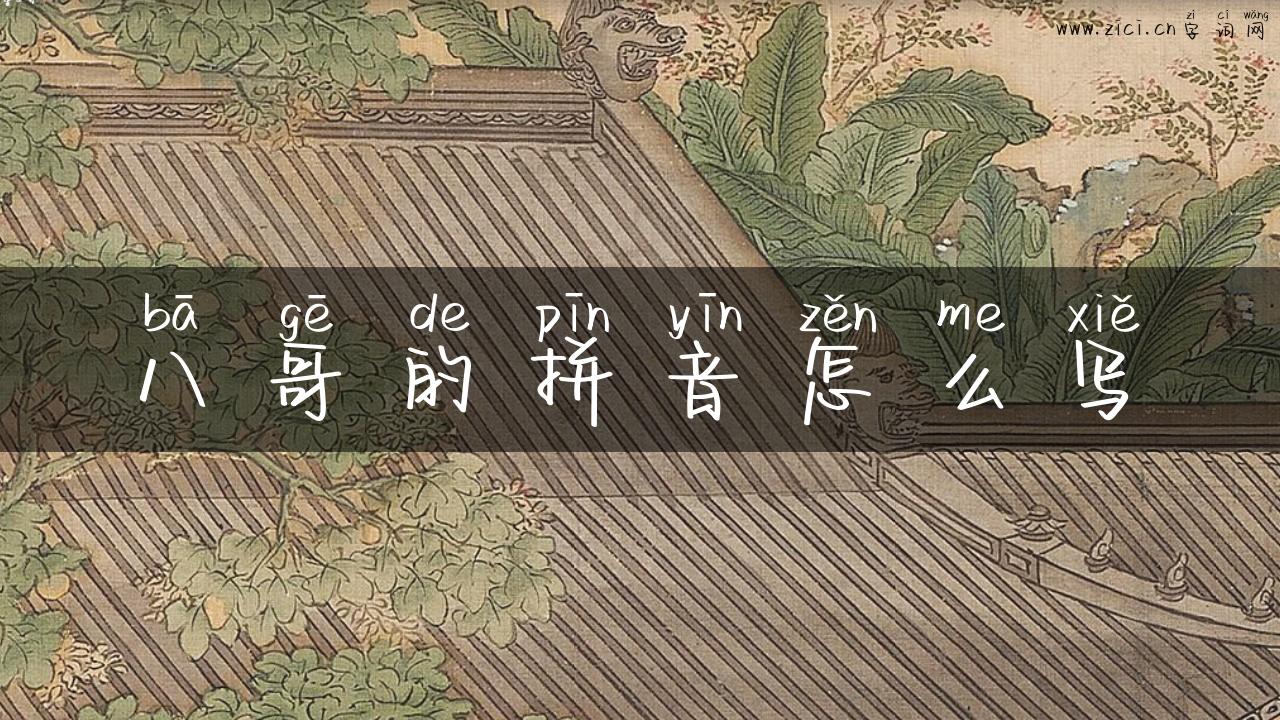 zì cí wǎng
www.zici.cn 字词网
bā gē de pīn yīn zěn me xiě
八哥的拼音怎么写